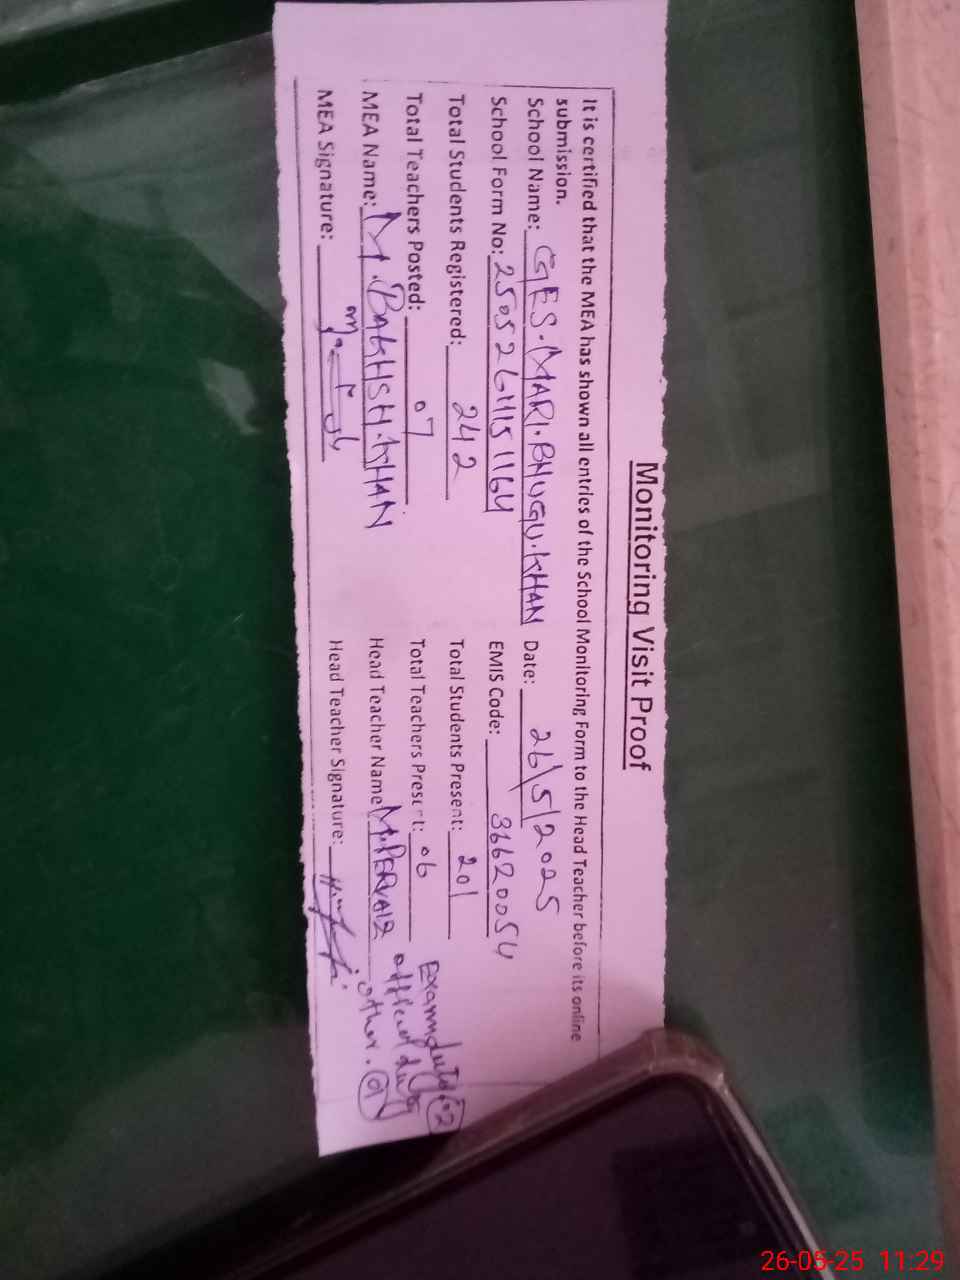 Monitoring Visit Proof
It is certified that the MEA has shown all entries of the School Monitoring Form to the Head Teacher before its online
submission.
School Name: GES. MARI. BHUGU. KHAN Date: 26/5/2025
School Form No: EMIS Code: 36620054
Total Students Registered: 242 Total Students Present: 201
Total Teachers Posted: 07 Total Teachers Present: 06
MEA Name: M. BAKHSH. KHAN Head Teacher Name M. PERVAIZ
MEA Signature: Head Teacher Signature:
Exam duty
duty
other.
26-05-25 11:29